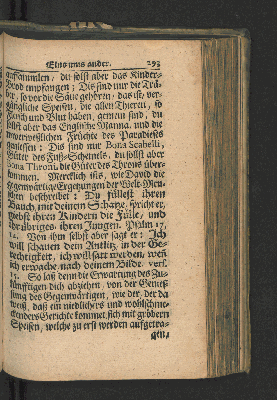 Eins ums ander. 293
auffsammlen / du solst aber das Kinder-
Brod empfangen; Dis sind nur die Trä-
ber, so vor die Säue gehören, das ist, ver-
gängliche Speisen, die allen Thieren, so
Fleisch und Blut haben, gemein sind, du
solst aber das Englische Manna, und die
unverweslichen Früchte des Paradieses
geniessen; Dis sind nur Bona Scabelli,
Güter des Fuß-Schemels, du solst aber
Bona Throni, die Güter des Throns über-
kommen. Mercklich ists, wie David die
gegenwärtige Ergetzungen der Welt-Men-
schen beschreibet: Du füllest ihren
Bauch mit deinem Schatze, spricht er,
gibst ihren Kindern die Fülle, und
ihr übriges, ihren Jungen. Psalm 17,
14. Von ihm selbst aber sagt er: Ich
will schauen dein Antlitz in der Ge-
rechtigkeit, ich will satt werden, wen̄
ich erwache, nach deinem Bilde. vers.
15. So laß denn die Erwartung des Zu-
künfftigen dich abziehen, von der Genies-
sung des Gegenwärtigen, wie der, der da
weiß, daß ein niedlichers und wohlschme-
ckenders Gerichte kommet, sich mit gröbern
Speisen, welche zu erst werden aufgetra-
gen,